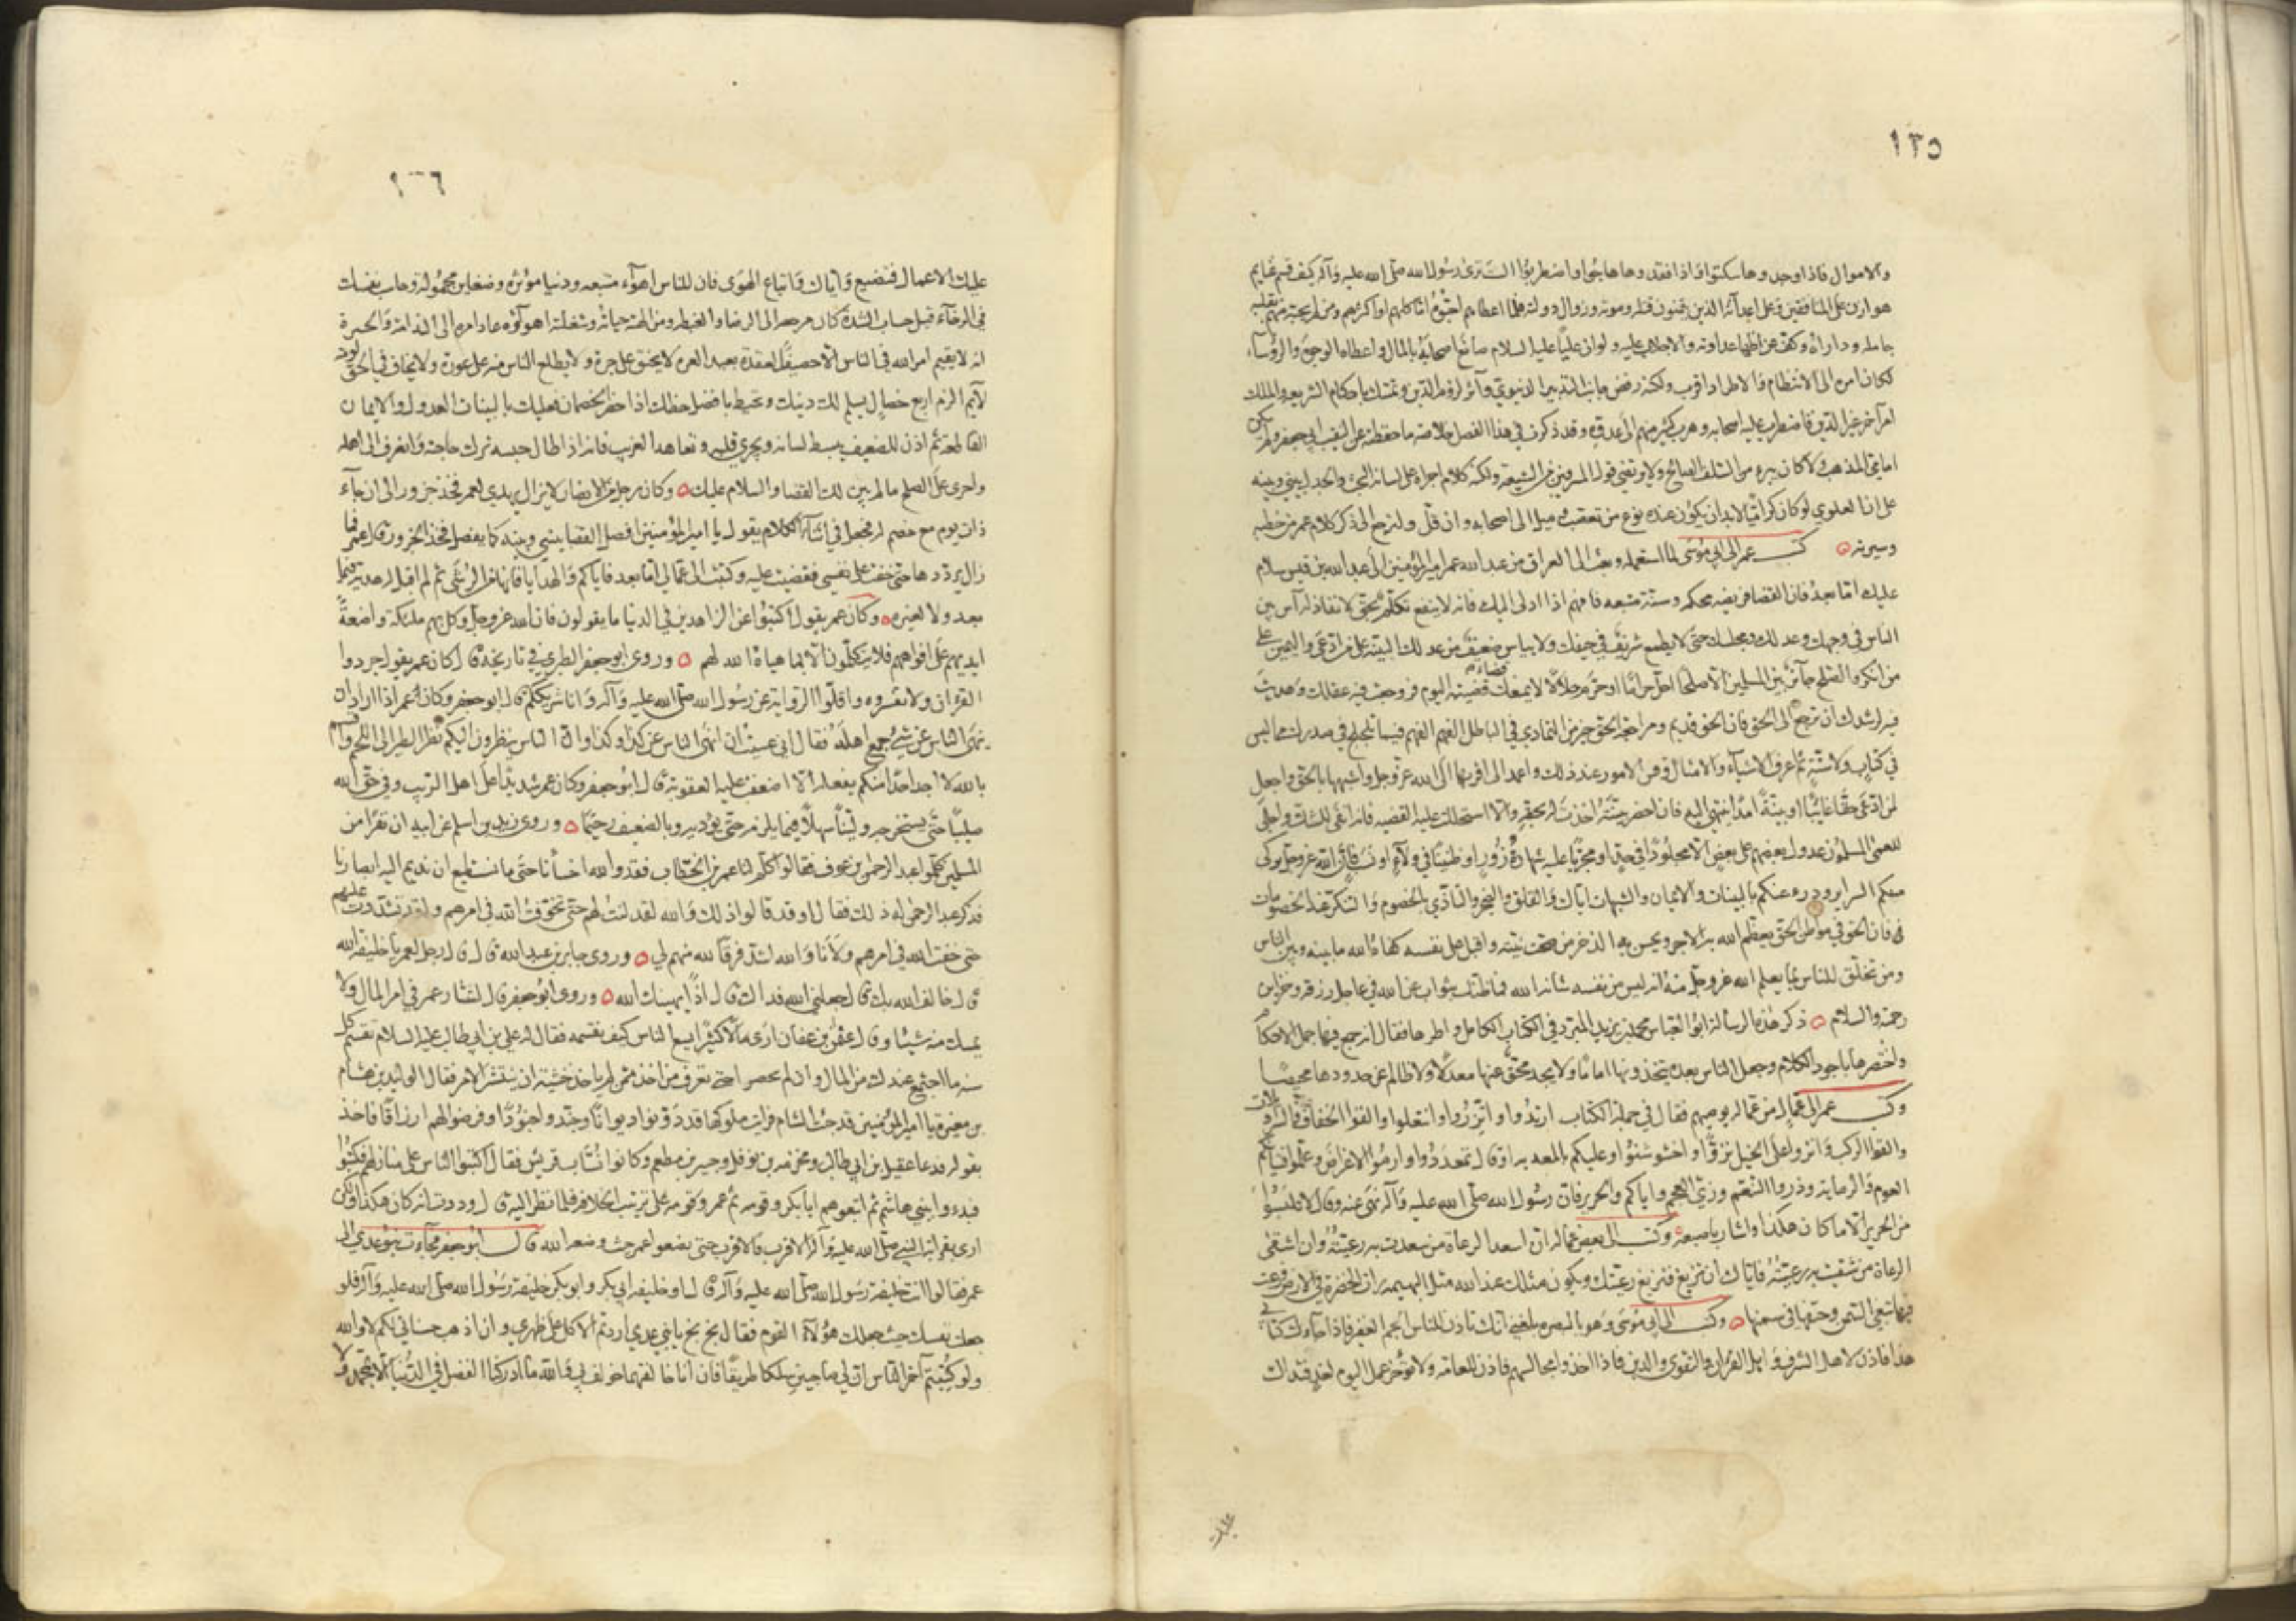 ١٣٥
والاموال فاذا وجدوها سكتوا واذا فقدوها هاجوا واضطربوا الست ترى رسول الله صلى الله عليه وآله كيف قسم غنايم
هوازن على المنافقين وعلى اعدائه الذين يتمنون قتله وموته وزوال دولته فلما اعطاهم احبوه اما كلهم او اكثرهم ومن لم يحبه منهم بقلبه
جامله وداراه وكف عن اظهار عداوته والاجلاب عليه ولو ان عليا عليه السلام صانع اصحابه بالمال واعطاه الوجوه والرؤساء
لكان امره الى الانتظام والاطراد اقرب ولكنه رفض جانب التدبير الدنيوي وآثر لزوم الدين وتمسك باحكام الشريعة والملك
امر آخر غير الدين فاضطرب عليه اصحابه وهرب كثير منهم الى عدوه وقد ذكرت في هذا الفصل خلاصة ما حفظته عن النقيب ابي جعفر ولم يكن
امامي المذهب ولا كان يبرء من السلف الصالح ولا يرتضي قول المسرفين من الشيعة ولكنه كلام اجراه على لسانه البحث والجدل بيني وبينه
على ان العلوي لو كان كراميا لابد ان يكون عنده نوع من تعصب وميل الى اصحابه وان قل ولنرجع الى ذكر كلام عمر من خطبه
وسيرته كتب عمر الى ابي موسى لما استعمله وبعثه الى العراق من عبد الله عمر امير المؤمنين الى عبد الله بن قيس سلام
عليك اما بعد فان القضا فريضة محكمه وسنة متبعه فافهم اذا ادلى اليك فانه لا ينفع تكلم بحق لا نفاذ له آس بين
الناس في وجهك وعدلك ومجلسك حتى لا يطمع شريف في حيفك ولا يياس ضعيف من عدلك البينة على من ادعى واليمين على
من انكر والصلح جائز بين المسلمين الا صلحا احل حراما او حرم حلالا لا يمنعك قضاء قضيته اليوم فراجعت فيه عقلك وهديت
فيه لرشدك ان ترجع الى الحق فان الحق قديم ومراجعة الحق خير من التمادي في الباطل الفهم الفهم فيما تلجلج في صدرك مما ليس
في كتاب ولا سنة ثم اعرف الاشباه والامثال وقس الامور عند ذلك واعمد الى اقربها الى الله عز وجل واشبهها بالحق واجعل
لمن ادعى حقا غائبا او بينة امدا ينتهي اليه فان احضر بينته اخذت له بحقه والا استحللت عليه القضيه فانه انفى للشك واجلى
للعمى المسلمون عدول بعضهم على بعض الا مجلودا في حد او مجربا عليه شهادة زور او ظنينا في ولاء او نسب فان الله عز وجل تولى
منكم السراير ودرء عنكم بالبينات والايمان والشبهات اياك والقلق والضجر والتأذي بالخصوم والتنكر عند الخصومات
فان الحق في مواطن الحق يعظم الله به الاجر ويحسن به الذخر فمن صحت نيته واقبل على نفسه كفاه الله ما بينه وبين الناس
ومن تخلق للناس بما يعلم الله عز وجل منه انه ليس من نفسه شانه الله فما ظنك بثواب عند الله في عاجل رزقه وخزاين
رحمته والسلام ذكر هذه الرسالة ابو العباس محمد بن يزيد المبرد في الكتاب الكامل واطراها فقال انه جمع فيها جمل الاحكام
واختصرها باجود الكلام وجعل الناس بعده يتخذونها اماما ولا يجد محق عنها معدلا ولا ظالم عن حدودها محيصا
وكتب عمر الى عماله من عماله يوصيهم فقال في جملة الكتاب ارتدوا واتزروا وانتعلوا والقوا الخفاف والسراويلات
والقوا الركب وانزوا على الخيل نزوا واخشوشنوا وعليكم بالمعديه او قال تمعددوا وارموا الاغراض وعلموا فتيانكم
العوم والرماية وذروا التنعم وزي العجم واياكم والحرير فان رسول الله صلى الله عليه وآله نهى عنه وقال لا تلبسوا
من الحرير الا ما كان هكذا واشار باصبعه وكتب الى بعض عماله ان اسعد الرعاة من سعدت به رعيته وان اشقى
الرعاة من شقيت به رعيته فاياك ان تزيغ فتزيغ رعيتك ويكون مثلك عند الله مثل البهيمة رات الخضرة في الارض فرعت
فيها تبغي السمن وحتفها في سمنها وكتب الى ابي موسى وهو بالبصره بلغني انك تاذن للناس الجم الغفير فاذا جاءك كتابي
هذا فاذن لاهل الشرف واهل القران والتقوى والدين فاذا اخذوا مجالسهم فاذن للعامة ولا تؤخر عمل اليوم لغد فتداك
عليك
١٣٦
عليك الاعمال فتضيع واياك واتباع الهوى فان للناس اهواء متبعه ودنيا مؤثره وضغاين محموله وحاسب نفسك
في الرخاء قبل حساب الشدة فانه من حاسب نفسه في الرخاء كان مرجعه الى الرضا والغبطه ومن الهته حياته وشغلته اهواؤه عاد امره الى الندامة والحسرة
انه لا يقيم امر الله في الناس الا حصيف العقدة بعيد الغره لا يحنق على جرة ولا يطلع الناس منه على عورة ولا يخاف في الحق لومة
لائم الزم اربع خصال يسلم لك دينك وتحيط بافضل حظك اذا حضر الخصمان فعليك بالبينات العدول والايمان
القاطعة ثم اذن للضعيف حتى يبسط لسانه ويجري قلبه وتعاهد الغريب فانه اذا طال حبسه ترك حاجته وانصرف الى اهله
واحرص على الصلح ما لم يبن لك القضا والسلام عليك وكان رجل من الانصار لا يزال يهدي لعمر فخذ جزور الى ان جاء
ذات يوم مع خصم له فجعل في اثناء الكلام يقول يا امير المؤمنين افصل القضا بيني وبينه كما يفصل فخذ الجزور قال عمر فما
زال يرددها حتى خفت على نفسي فقضيت عليه وكتبت الى عمالي اما بعد فاياكم والهدايا فانها من الرشى ثم لم اقبل له هدية فيما
بعد ولا لغيره وكان عمر يقول اكتبوا عن الزاهدين في الدنيا ما يقولون فان الله عز وجل وكل بهم ملئكة واضعة
ايديهم على افواههم فلا يتكلمون الا بما هياه الله لهم وروى ابو جعفر الطبري في تاريخه قال كان عمر يقول جردوا
القرآن ولا تفسروه واقلوا الرواية عن رسول الله صلى الله عليه وآله وانا شريككم قال ابو جعفر وكان عمر اذا اراد ان
ينهى الناس عن شيء جمع اهله فقال اني عسيت ان انهى الناس عن كذا وكذا وان الناس ينظرون اليكم نظر الطير الى اللحم واقسم
بالله لا اجد احدا منكم يفعله الا اضعفت عليه العقوبة قال ابو جعفر وكان عمر شديدا على اهل الريب وفي حق الله
صليبا حتى يستخرجه ولينا سهلا فيما يلزمه حتى يؤديه وبالضعيف رحيما وروى زيد بن اسلم عن ابيه ان نفرا من
المسلمين كلموا عبد الرحمن بن عوف فقالوا كلم لنا عمر بن الخطاب فقد والله اخشانا حتى ما نستطيع ان نديم اليه ابصارنا
فذكر عبد الرحمن له ذلك فقال او قد قالوا ذلك والله لقد لنت لهم حتى تخوفت الله في امرهم ولقد تشددت عليهم
حتى خفت الله في امرهم ولانا والله اشد فرقا لله منهم لي وروى جابر بن عبد الله قال قال رجل لعمر يا خليفة الله
قال خالف الله بك قال جعلني الله فداك قال اذا يهينك الله وروى ابو جعفر قال استشار عمر في امر المال ولا
يمسك منه شيئا وقال عثمان بن عفان ارى مالا كثيرا يسع الناس كيف نقسمه فقال له علي بن ابي طالب عليه السلام تقسم كل
سنه ما اجتمع عندك من المال وان لم يحصر احد تعرف من اخذ ممن لم ياخذ خشية ان ينتشر الامر فقال الوليد بن هشام
بن مغيرة يا امير المؤمنين قد جئت الشام فرايت ملوكها قد دونوا ديوانا وجندوا جنودا وفرضوا لهم ارزاقا فاخذ
بقوله فدعا عقيل بن ابي طالب ومخرمة بن نوفل وجبير بن مطعم وكانوا نساب قريش فقال اكتبوا الناس على منازلهم فكتبوا
فبدءوا ببني هاشم ثم اتبعوهم ابا بكر وقومه ثم عمر وقومه على ترتيب الخلافه فلما نظر اليه قال وددت انه كان هكذا ولكن
ارى بقرابة النبي صلى الله عليه وآله الاقرب فالاقرب حتى يضعوا عمر حيث وضعه الله قال ابو جعفر فجاءت بنو عدي الى
عمر فقالوا انت خليفة رسول الله صلى الله عليه وآله قال او خليفة ابي بكر وابو بكر خليفة رسول الله صلى الله عليه وآله فلو
جعلت نفسك حيث جعلك هؤلاء القوم فقال بخ بخ يا بني عدي اردتم الاكل على ظهري وان اذهب حسناتي لكم لا والله
ولو كتبتم آخر الناس ان لي صاحبين سلكا طريقا فان انا خالفتهما خولف بي والله ما ادركنا الفضل في الدنيا الا بمحمد ولا